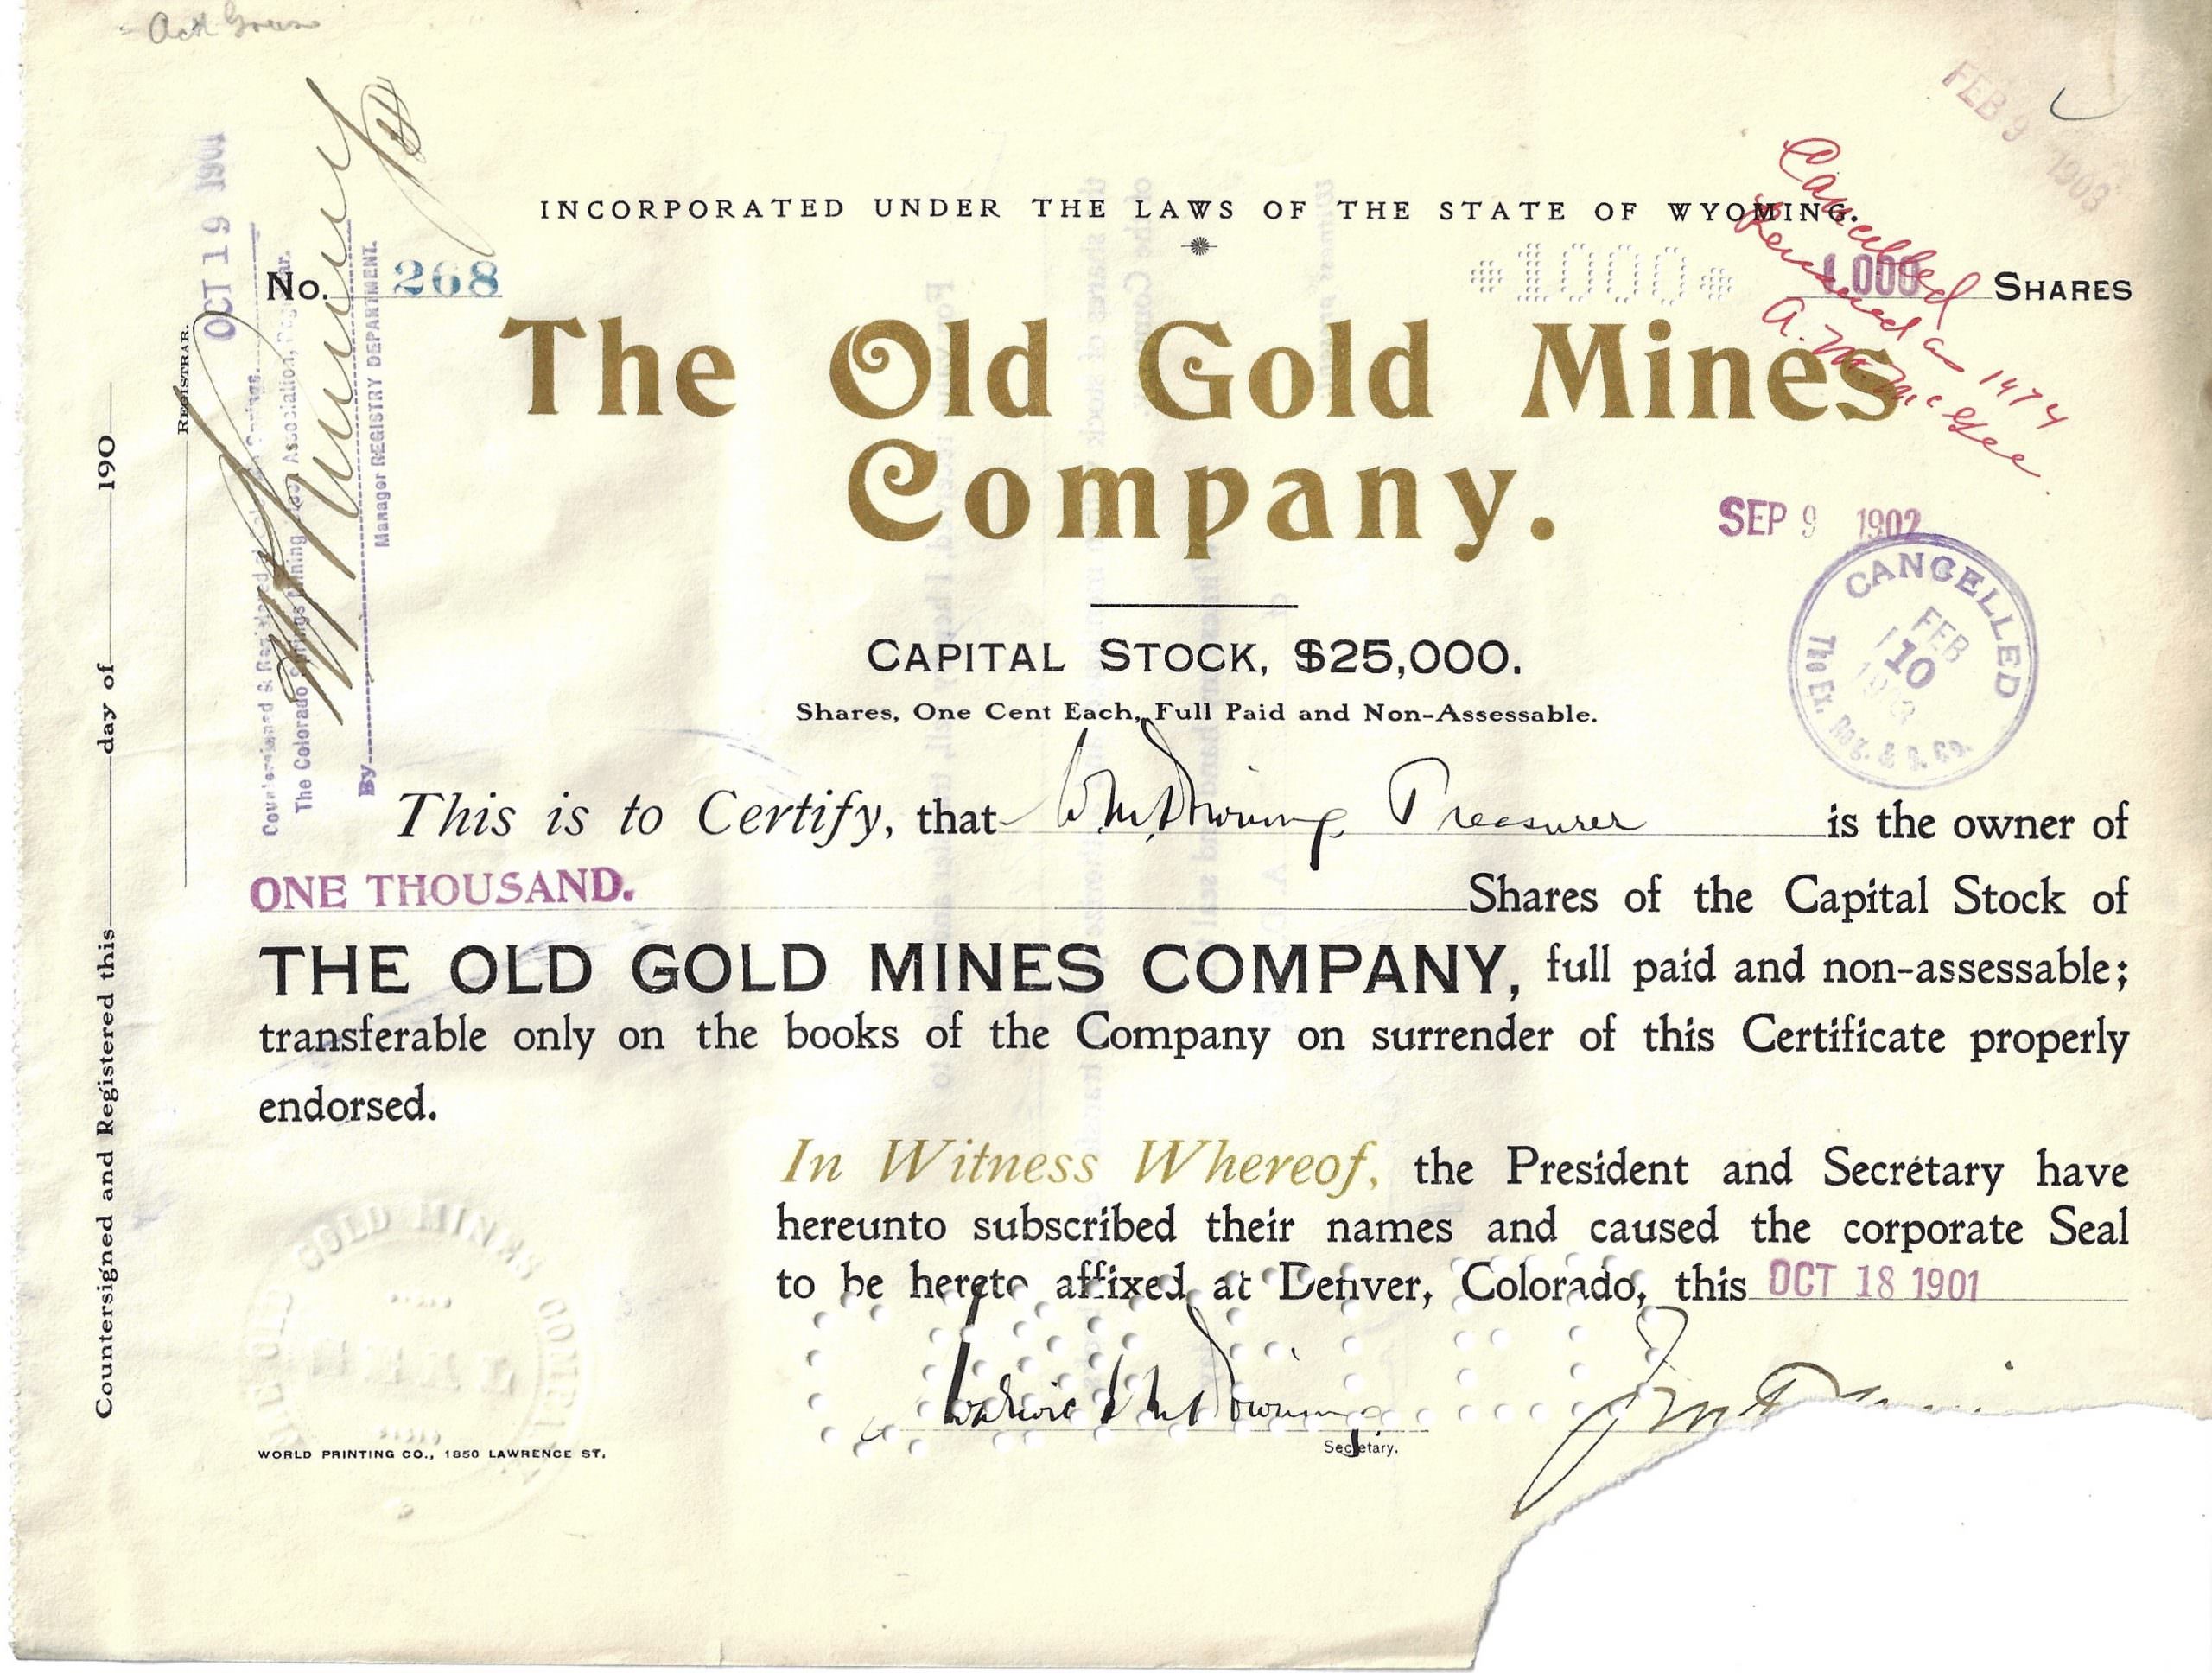 FEB 9 1903
INCORPORATED UNDER THE LAWS OF THE STATE OF WYOMING.
No. 268
1000
1000 SHARES
Cancelled
as 1474
A. M. McGee
The Old Gold Mines
Company.
SEP 9 1902
CANCELLED
FEB
10
The Ex. Reg. & S. Co.
CAPITAL STOCK, $25,000.
Shares, One Cent Each, Full Paid and Non-Assessable.
This is to Certify, that Wm Treasurer is the owner of
ONE THOUSAND. Shares of the Capital Stock of
THE OLD GOLD MINES COMPANY, full paid and non-assessable;
transferable only on the books of the Company on surrender of this Certificate properly
endorsed.
In Witness Whereof, the President and Secretary have
hereunto subscribed their names and caused the corporate Seal
to be hereto affixed at Denver, Colorado, this OCT 18 1901
Secretary.
GOLD MINES COMPANY
WORLD PRINTING CO., 1850 LAWRENCE ST.
Countersigned and Registered this day of 190
REGISTRAR.
OCT 19 1901
Countersigned & Registered
The Colorado Springs Mining Stock Association, Registrar.
By
Manager REGISTRY DEPARTMENT.